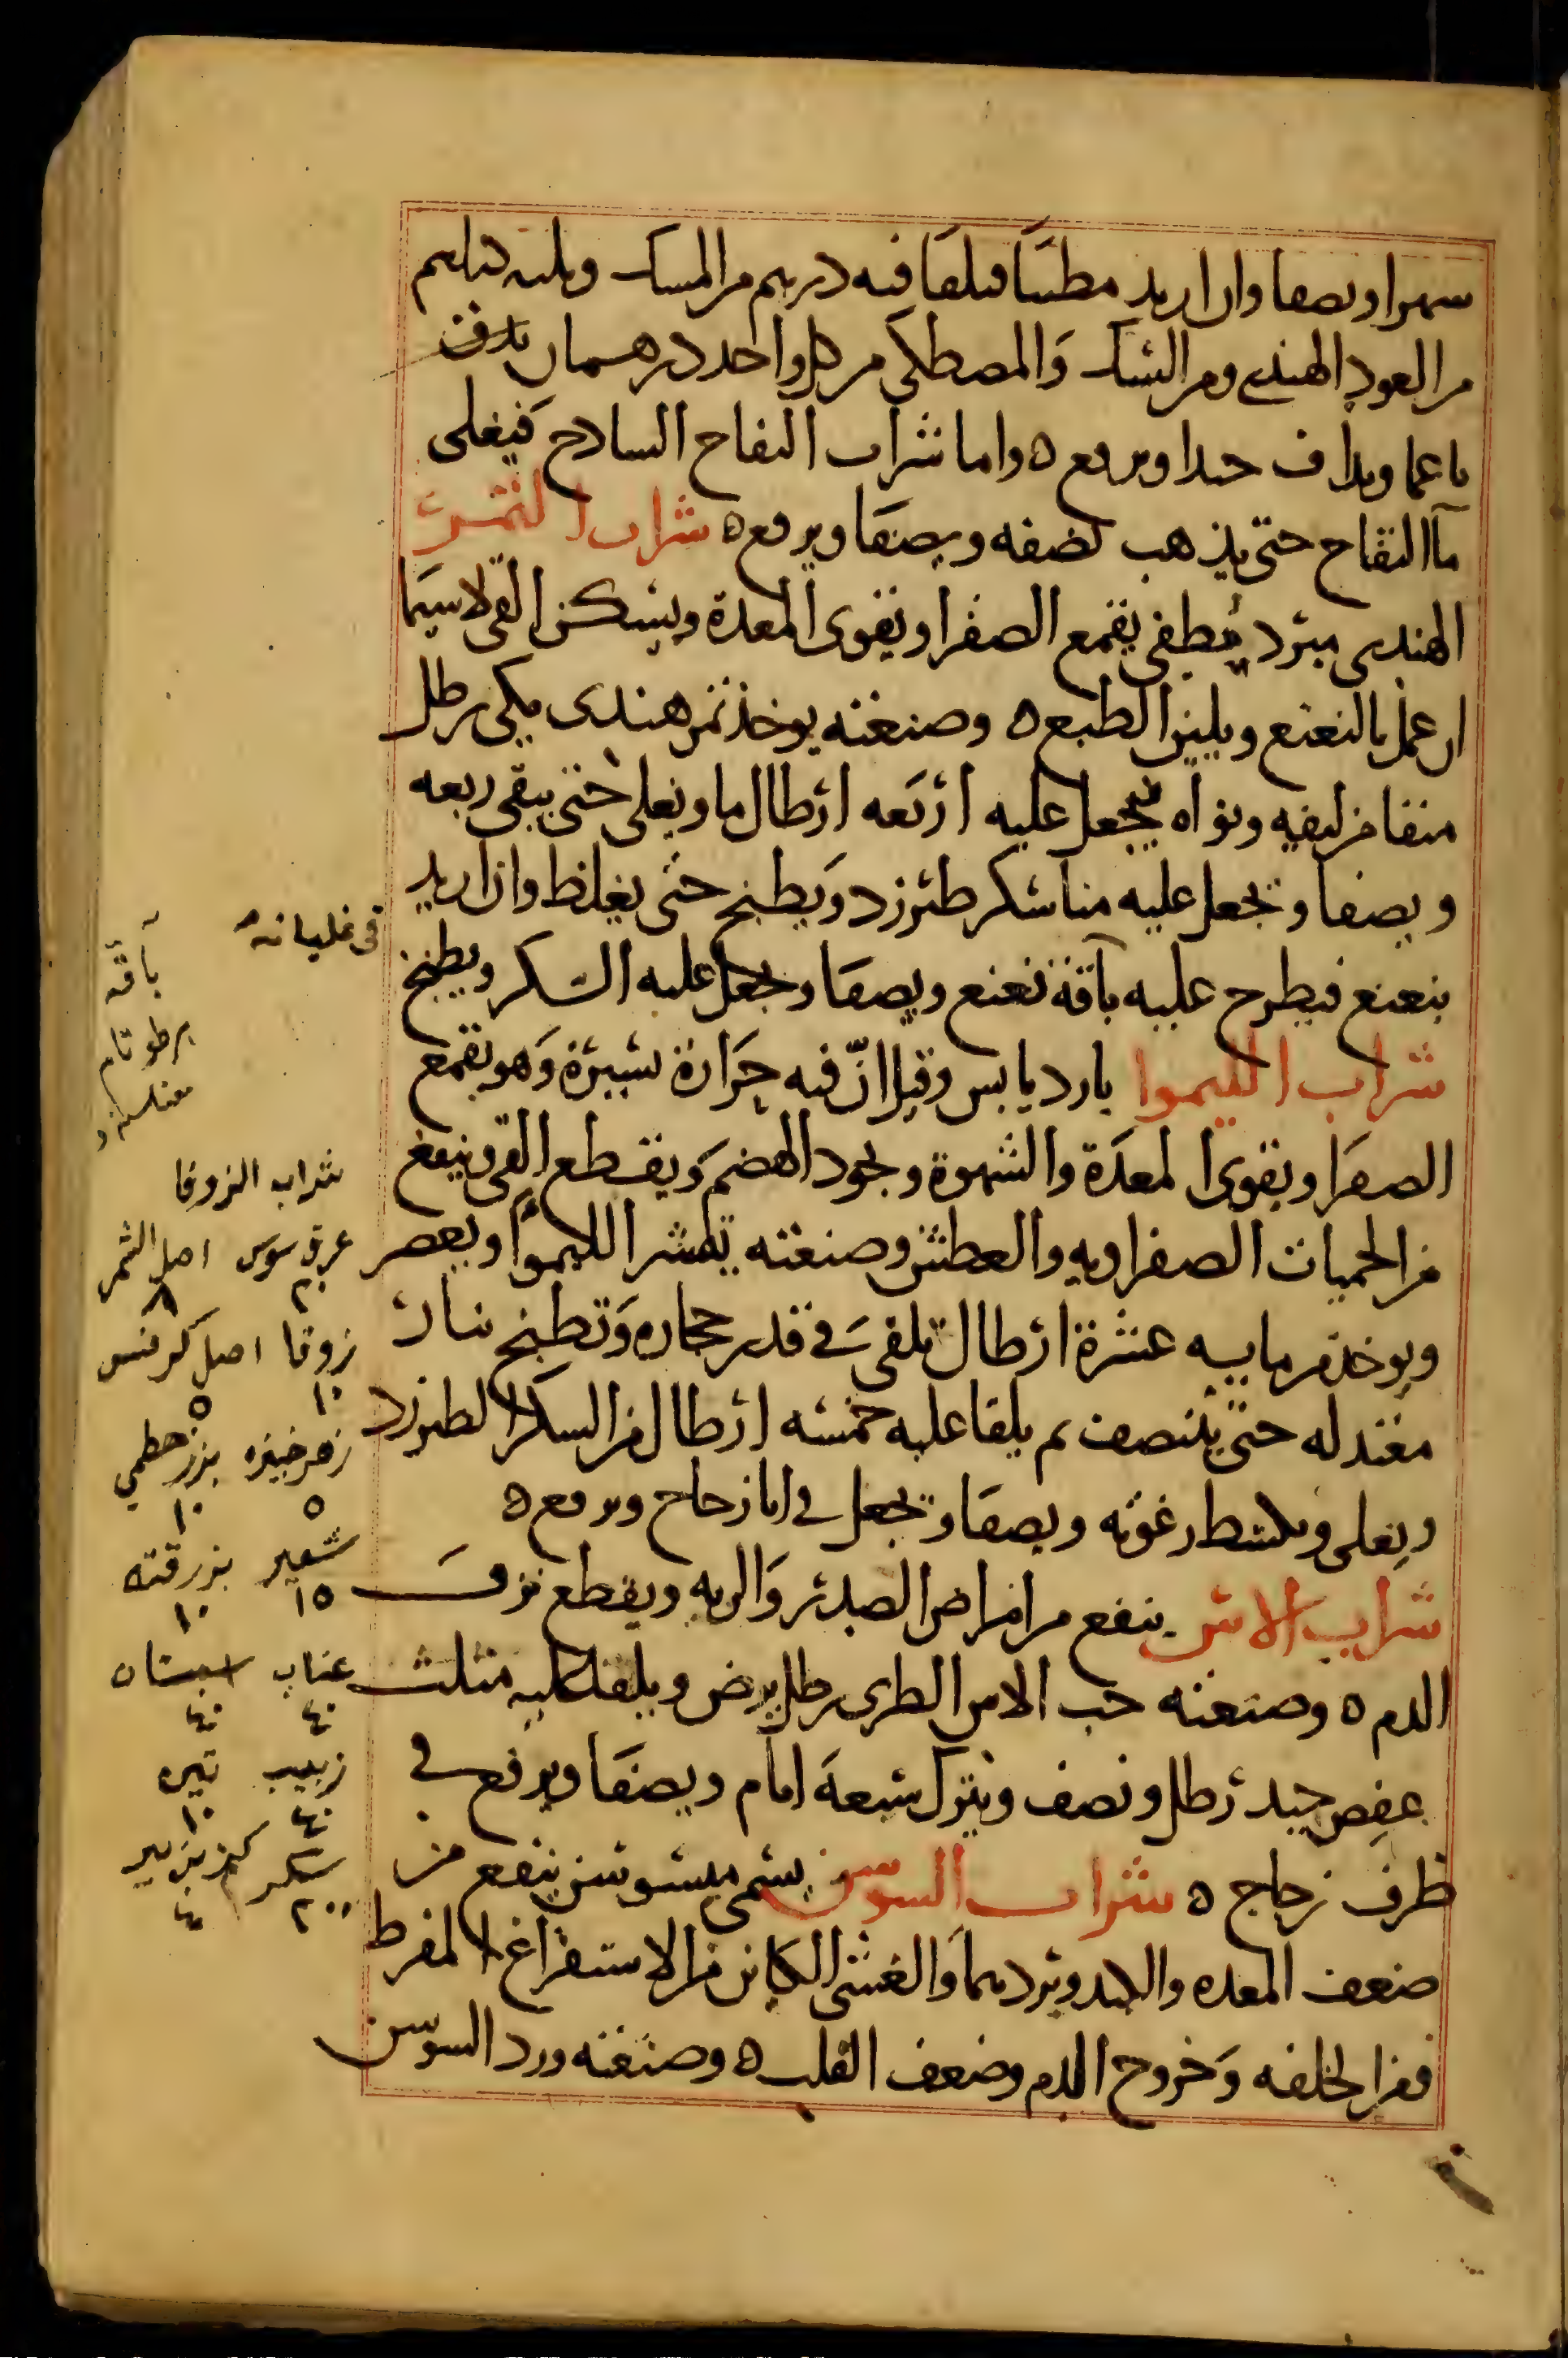 شهرا ويصفا وان اريد مطيبا فيلقا فيه درهم من المسك وثلثه دراهم
من العود الهندي ومن السك والمصطكى من كل واحد درهمان يدق
ناعما ويداف جيدا ويرفع ه واما شراب التفاح الساذج فيغلى
مآ التفاح حتى يذهب نصفه ويصفا ويرفع ه شراب التمر
الهندى مبرد مطفي يقمع الصفرا ويقوى المعدة ويسكن القى لاسيما
ان عمل بالنعنع ويلين الطبع ه وصنعته يوخذ تمر هندى مكى رطل
منقا من ليفه ونواه يجعل عليه اربعه ارطال ما ويغلى حتى يبقى ربعه
ويصفا ويجعل عليه منا سكر طبرزد ويطبخ حتى يغلظ وان اريد
بنعنع فيطرح عليه باقة نعنع ويصفا ويجعل عليه السكر ويطبخ
شراب الليموا بارد يابس وقيل ان فيه حرارة يسيرة وهو يقمع
الصفرا ويقوى المعدة والشهوة ويجود الهضم ويقطع القى وينفع
من الحميات الصفراويه والعطش وصنعته يقشر الليموا ويعصر
ويوخذ من مايه عشرة ارطال تلقى في قدر حجاره وتطبخ بنار
معتدله حتى ينتصف ثم يلقا عليه خمسه ارطال من السكر الطبرزد
ويغلى ويكشط رغوته ويصفا ويجعل في انا زجاج ويرفع ه
شراب الاس ينفع من امراض الصدر والريه ويقطع نزف
الدم ه وصنعته حب الاس الطرى رطل يرض ويلقا عليه مثلث
عفص جيد رطل ونصف ويترك سبعة ايام ويصفا ويرفع في
ظرف زجاج ه شراب السوسن يسمى ميسوسن ينفع من
ضعف المعده والكبد وبردهما والغشى الكاين من الاستفراغ المفرط
ومن الخلفه وخروج الدم وضعف القلب ه وصنعته ورد السوسن
فى غليانه
باقه
شراب الزوفا
عرق سوس ٢٠ اصل الشمر ٨
زوفا ١٠ اصل كرفس ٥
زهر خبيزه ٥ بزر خطمي ١٠
شعير ١٥ بزر قته ١٠
عناب ٤٠ سبستان ٤٠
زبيب ٤٠ تين ١٠
سكر ٢٠٠ كزبرة بير ٤